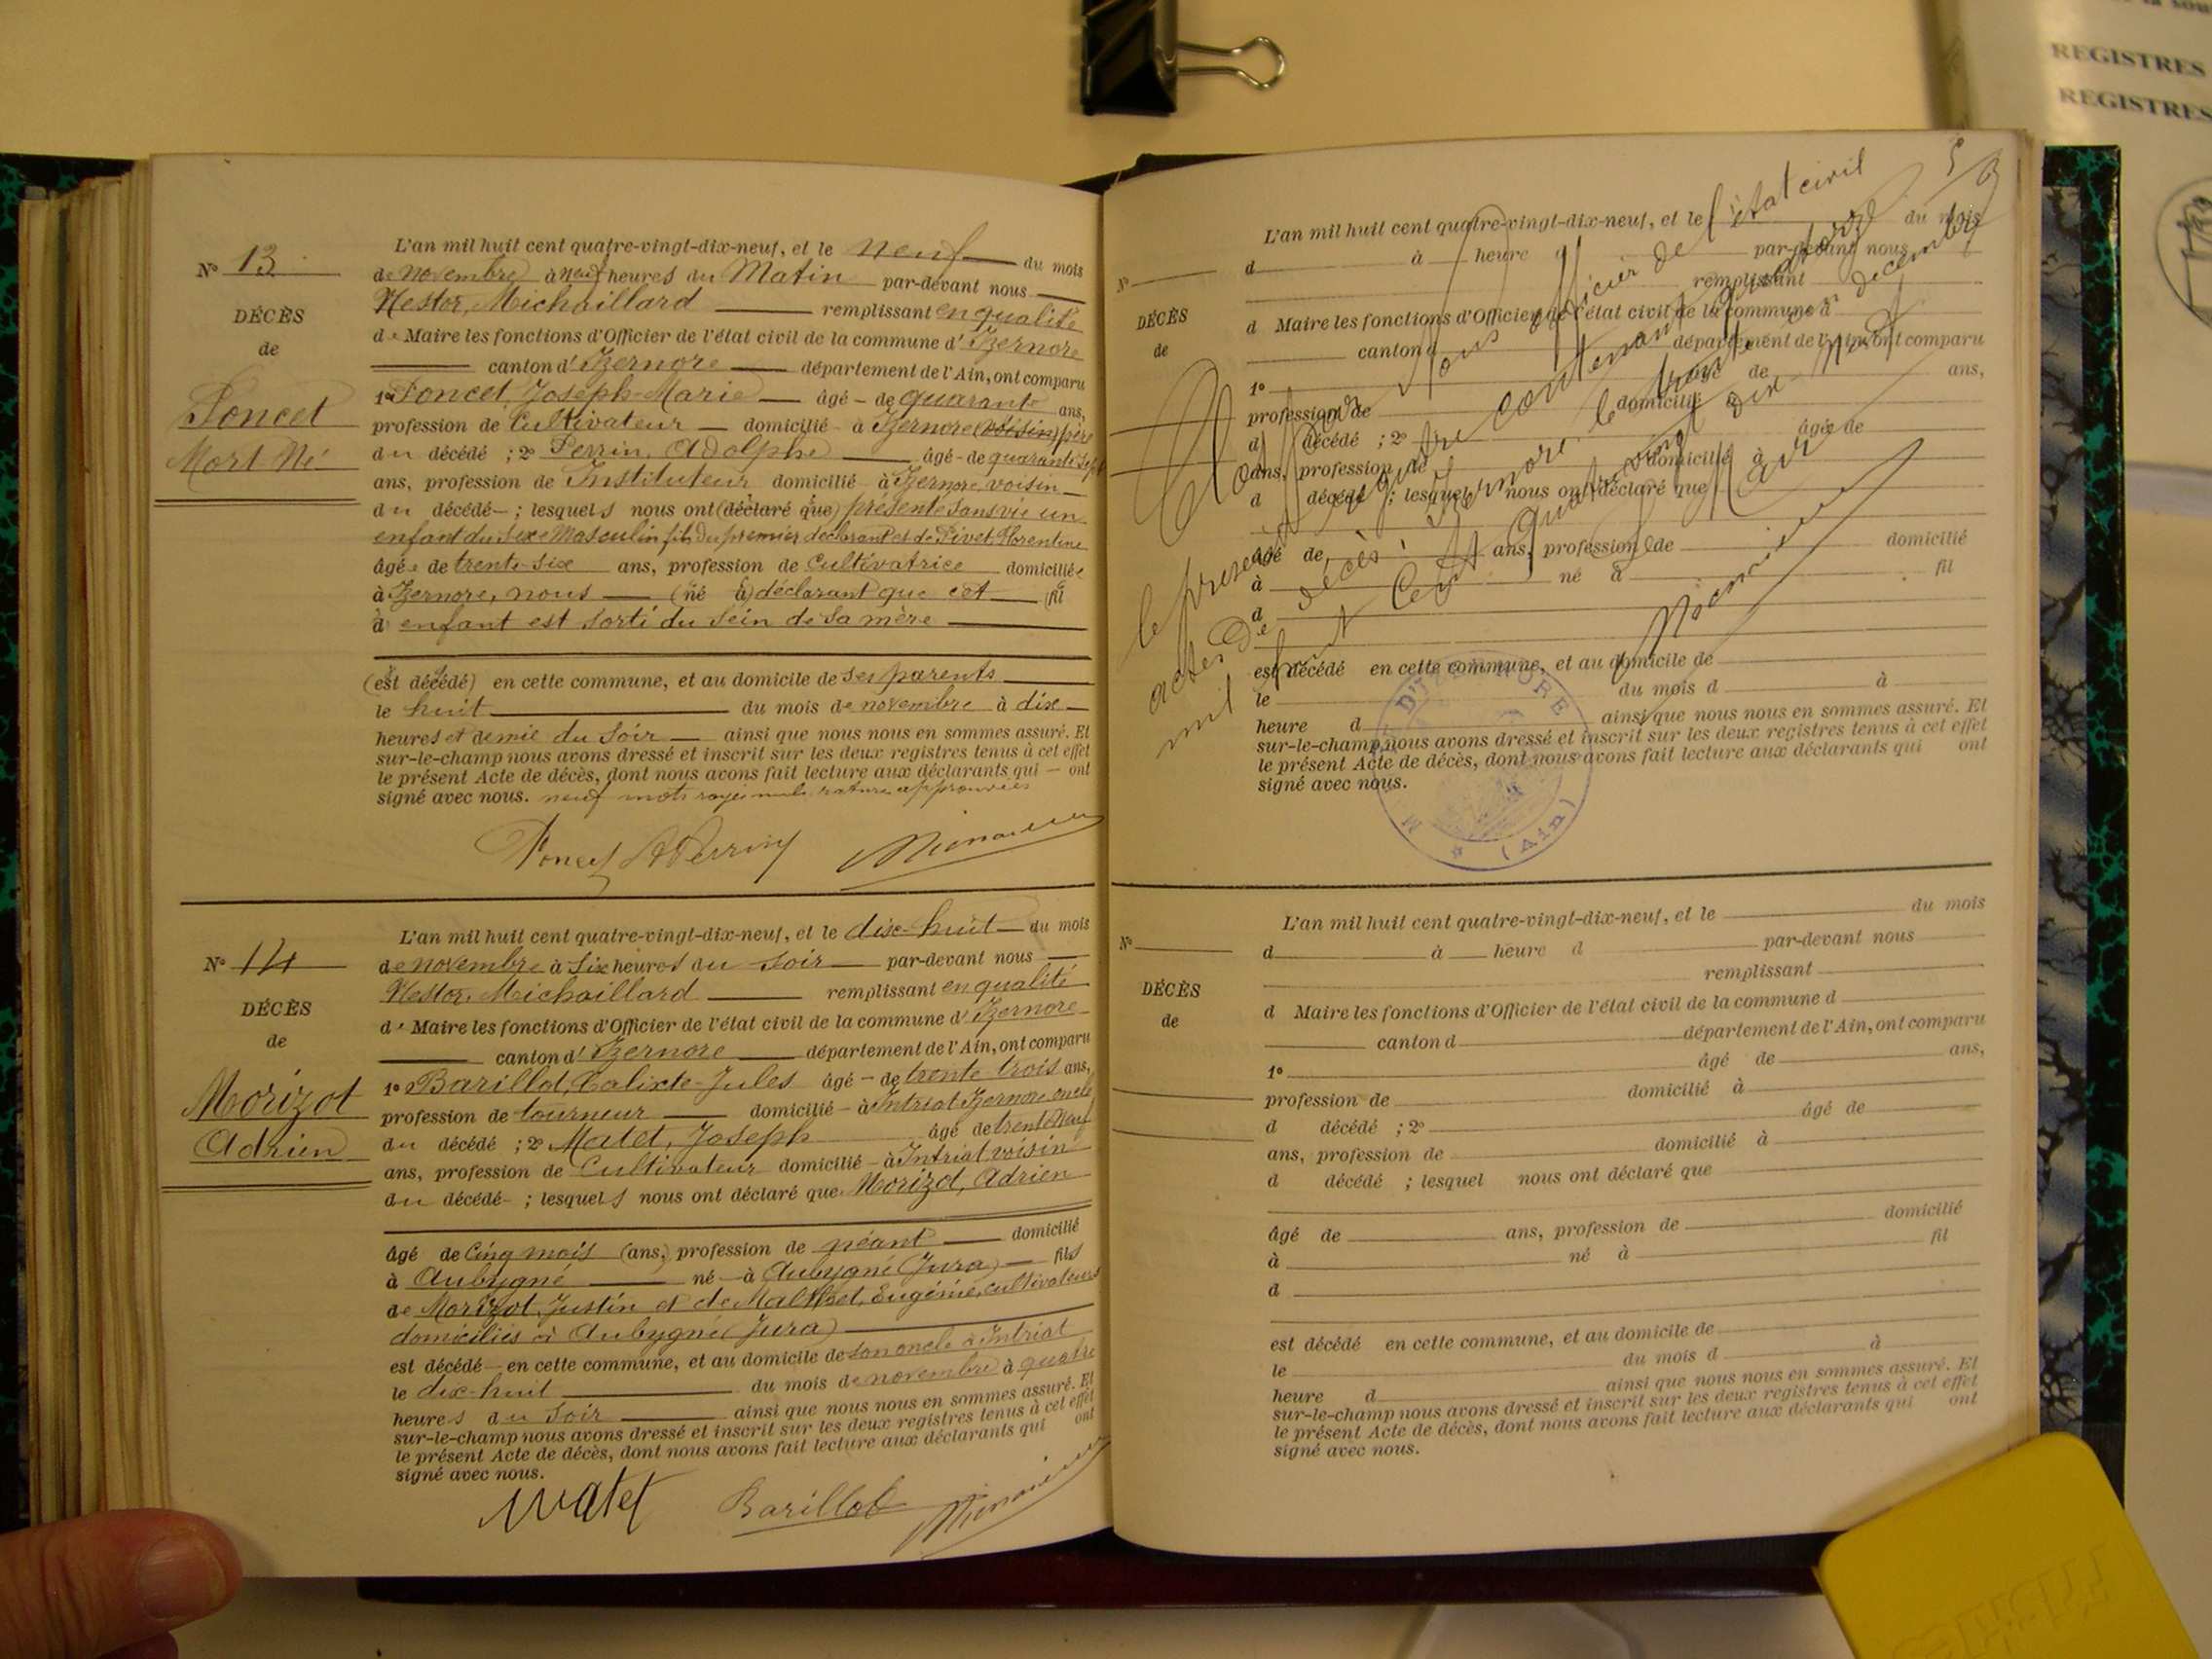 N° 13
DÉCÈS
de
Poncet
Mort Né
L'an mil huit cent quatre-vingt-dix-neuf, et le neuf du mois
de novembre à neuf heures du Matin par-devant nous
Nestor, Michaillard remplissant en qualité
de Maire les fonctions d'Officier de l'état civil de la commune d'Izernore
canton d'Izernore département de l'Ain, ont comparu
1° Poncet, Joseph-Marie âgé de quarante ans,
profession de Cultivateur domicilié à Izernore (voisin) père
du décédé ; 2° Perrin, Adolphe âgé de quarante sept
ans, profession de Instituteur domicilié à Izernore, voisin
du décédé ; lesquels nous ont (déclaré que) présenté sans vie un
enfant du sexe Masculin, fils du premier déclarant et de Pivet, Florentine
âgée de trente-six ans, profession de Cultivatrice domiciliée
à Izernore, nous (né à) déclarant que cet (fil
d enfant est sorti du sein de sa mère
(est décédé) en cette commune, et au domicile de ses parents
le huit du mois de novembre à dix
heures et demie du soir ainsi que nous nous en sommes assuré. Et
sur-le-champ nous avons dressé et inscrit sur les deux registres tenus à cet effet
le présent Acte de décès, dont nous avons fait lecture aux déclarants qui ont
signé avec nous. neuf mots rayés nuls ratures approuvées
Poncet A Perrin
N° 14
DÉCÈS
de
Morizot
Adrien
L'an mil huit cent quatre-vingt-dix-neuf, et le dix-huit du mois
de novembre à six heures du soir par-devant nous
Nestor, Michaillard remplissant en qualité
d' Maire les fonctions d'Officier de l'état civil de la commune d'Izernore
canton d'Izernore département de l'Ain, ont comparu
1° Barillot, Calixte-Jules âgé de trente trois ans,
profession de tourneur domicilié à Intriat Izernore oncle
du décédé ; 2° Matet, Joseph âgé de trente neuf
ans, profession de Cultivateur domicilié à Intriat voisin
du décédé ; lesquels nous ont déclaré que Morizot, Adrien
âgé de Cinq mois (ans,) profession de néant domicilié
à Aubygné né à Aubygné (Jura) fils
de Morizot, Justin et de Eugénie, cultivateurs
domiciliés à Aubygné (Jura)
est décédé en cette commune, et au domicile de son oncle à Intriat
le dix-huit du mois de novembre à quatre
heures du soir ainsi que nous nous en sommes assuré. Et
sur-le-champ nous avons dressé et inscrit sur les deux registres tenus à cet effet
le présent Acte de décès, dont nous avons fait lecture aux déclarants qui ont
signé avec nous.
Matet Barillot
N°
DÉCÈS
de
L'an mil huit cent quatre-vingt-dix-neuf, et le du mois
d à heure d par-devant nous
remplissant
d Maire les fonctions d'Officier de l'état civil de la commune d
canton d département de l'Ain, ont comparu
1° âgé de ans,
profession de domicilié à
d décédé ; 2° âgé de
ans, profession de domicilié à
d décédé ; lesquel nous ont déclaré que
âgé de ans, profession de domicilié
à né à fil
d
est décédé en cette commune, et au domicile de
le du mois d à
heure d ainsi que nous nous en sommes assuré. Et
sur-le-champ nous avons dressé et inscrit sur les deux registres tenus à cet effet
le présent Acte de décès, dont nous avons fait lecture aux déclarants qui ont
signé avec nous.
Clos par Nous officier de l'état civil
le présent registre contenant quatorze
actes de décès à Izernore le trente un décembre
mil huit Cent quatre vingt dix-neuf
Le Maire
(Ain)
N°
DÉCÈS
de
L'an mil huit cent quatre-vingt-dix-neuf, et le du mois
d à heure d par-devant nous
remplissant
d Maire les fonctions d'Officier de l'état civil de la commune d
canton d département de l'Ain, ont comparu
1° âgé de ans,
profession de domicilié à
d décédé ; 2° âgé de
ans, profession de domicilié à
d décédé ; lesquel nous ont déclaré que
âgé de ans, profession de domicilié
à né à fil
d
est décédé en cette commune, et au domicile de
le du mois d à
heure d ainsi que nous nous en sommes assuré. Et
sur-le-champ nous avons dressé et inscrit sur les deux registres tenus à cet effet
le présent Acte de décès, dont nous avons fait lecture aux déclarants qui ont
signé avec nous.
REGISTRES
REGISTRES